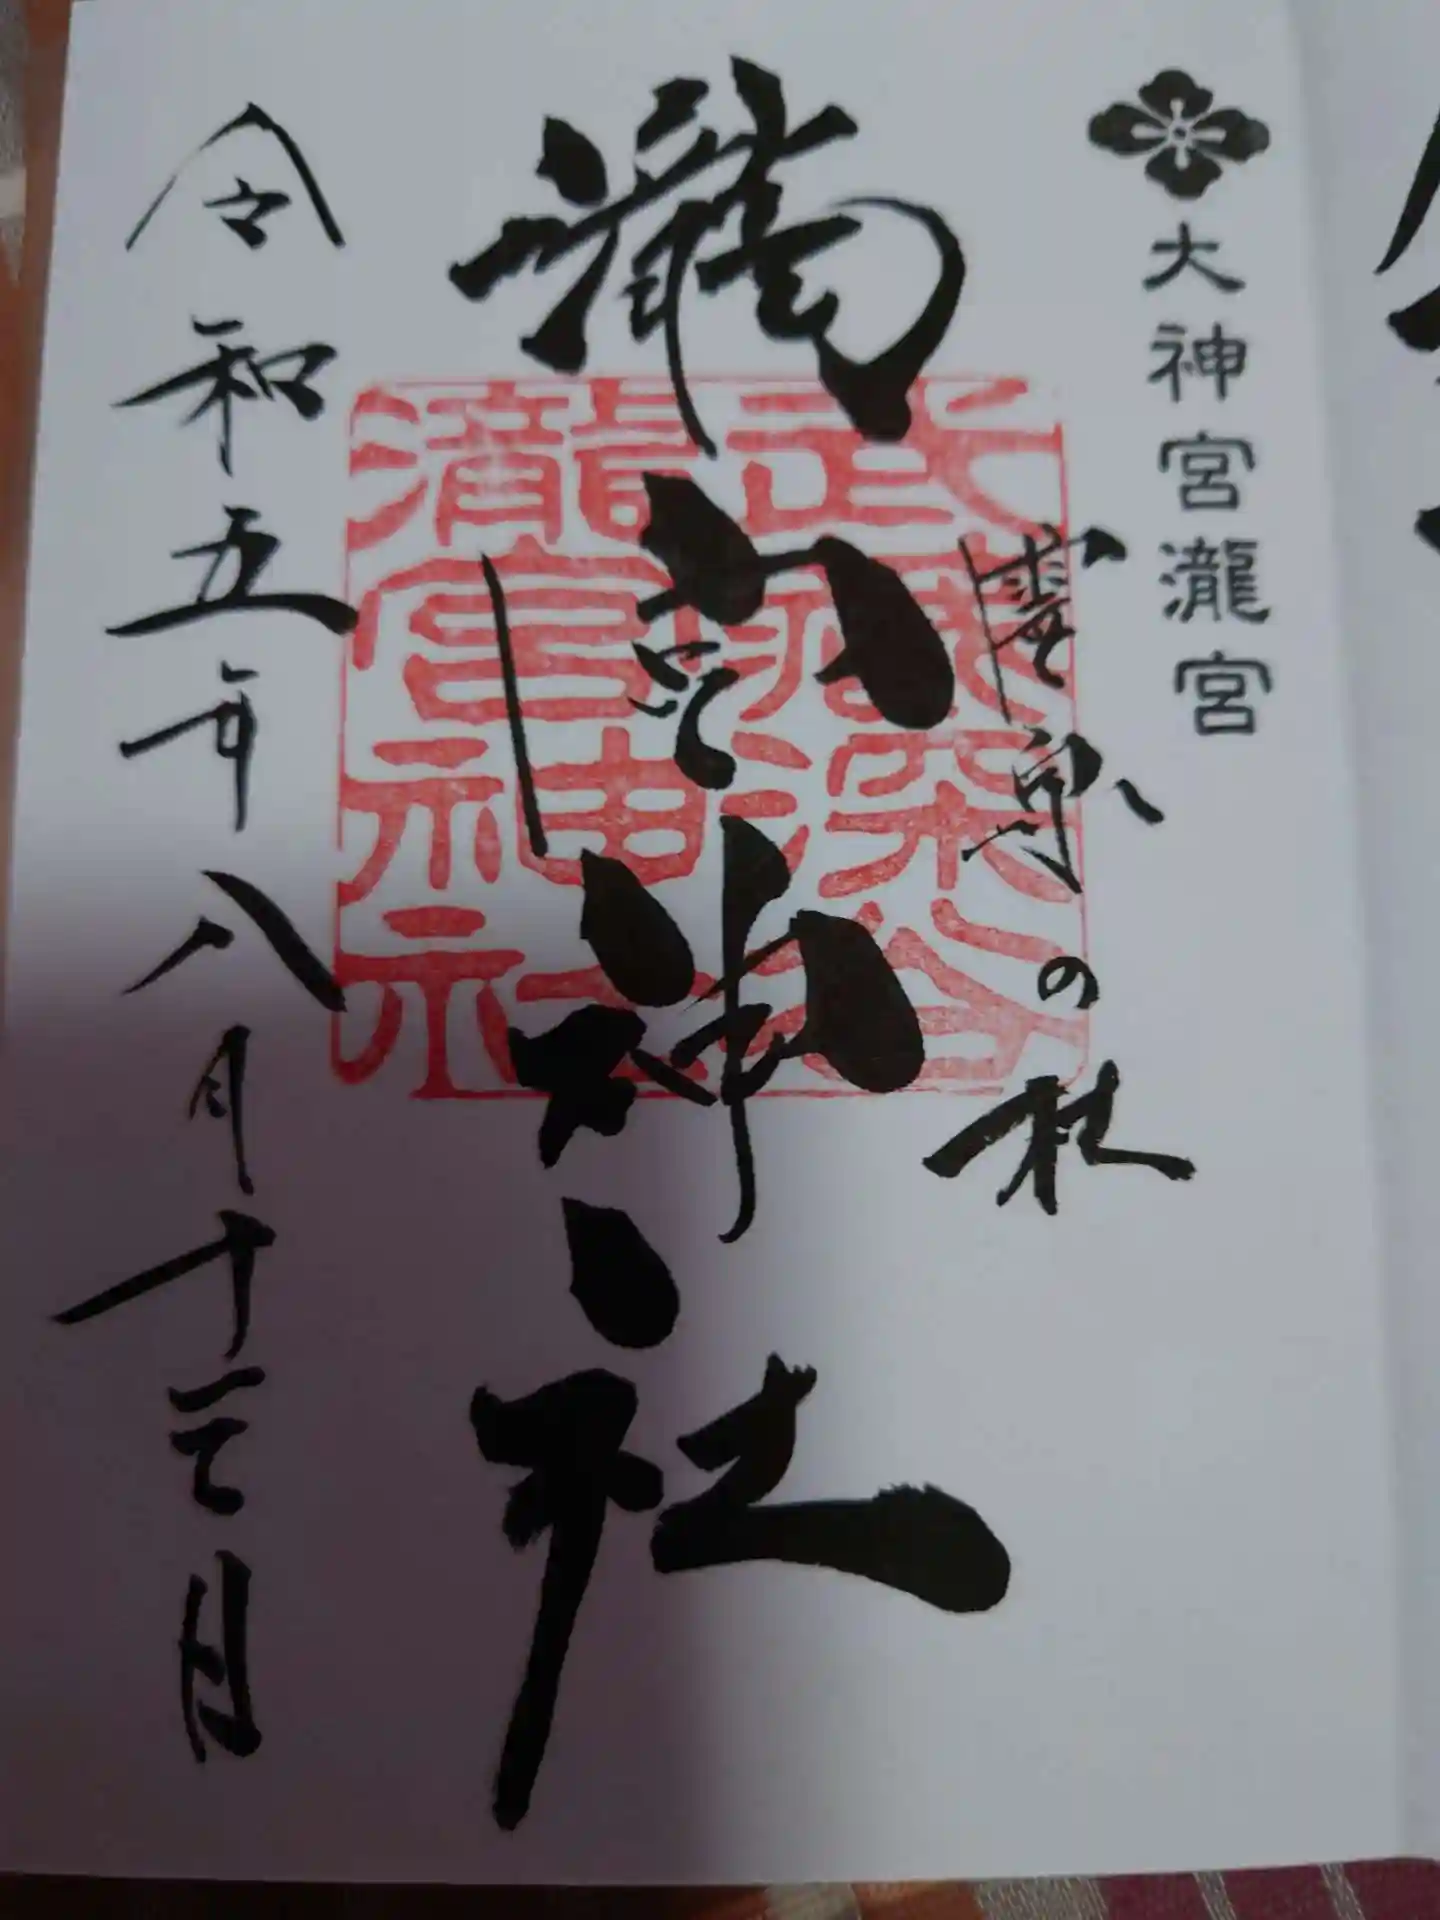 大神宮瀧宮
霊泉の杜
瀧宮神社
武蔵深谷
瀧宮神社
令和五年八月十三日